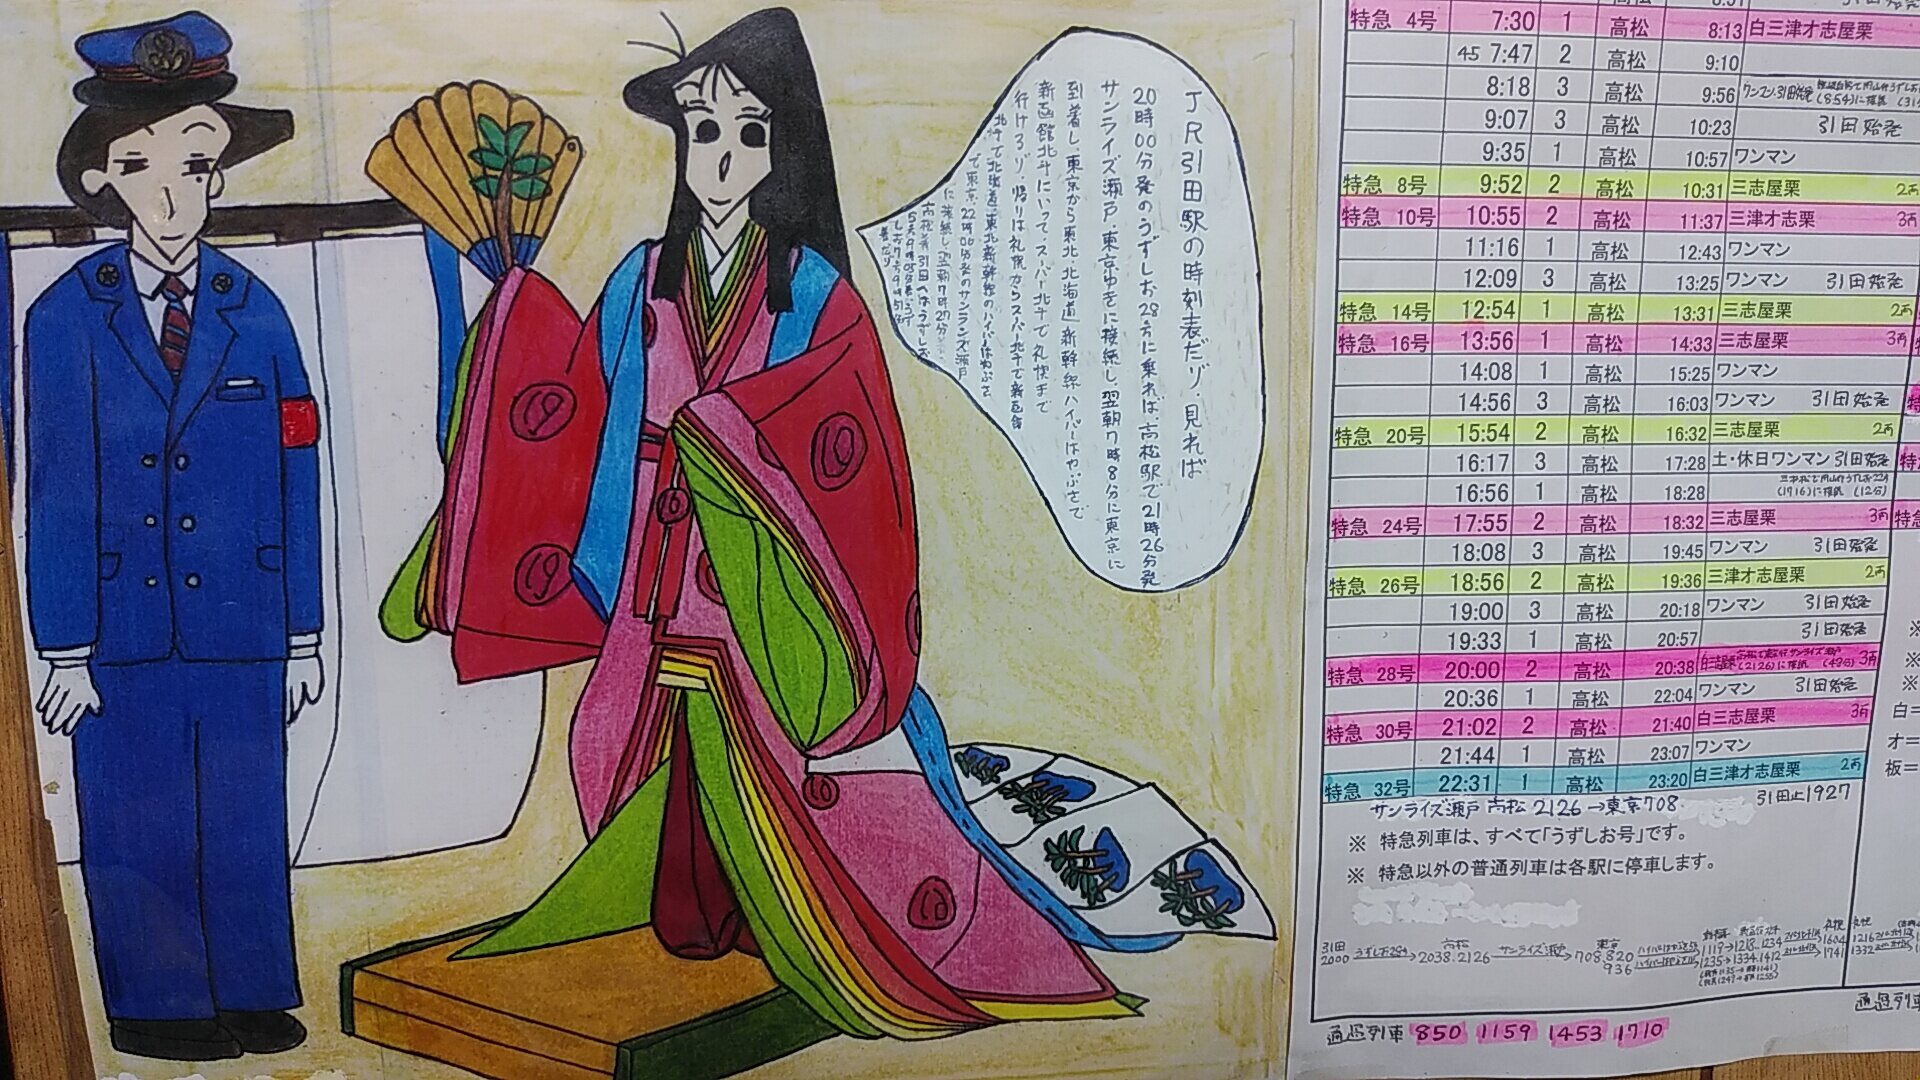 JR引田駅の時刻表だゾ・見れば
20時00分発のうずしお28号に乗れば高松駅で21時26分発
サンライズ瀬戸東京ゆきに接続し、翌朝7時8分に東京に
到着し、東京から東北北海道新幹線ハイパーはやぶさで
新函館北斗にいって、スーパー北斗で札幌まで
行けるゾ・帰りは札幌からスーパー北斗で新函館
北斗で北海道東北新幹線のハイパーはやぶさ
で東京22時00分発のサンライズ瀬戸
に接続し、翌朝7時27分
高松着引田へはうずしお
特急 4号 7:30 1 高松 8:13 白三津オ志屋栗
45 7:47 2 高松 9:10
8:18 3 高松 9:56 ワンマン 引田始発
9:07 3 高松 10:23 引田始発
9:35 1 高松 10:57 ワンマン
特急 8号 9:52 2 高松 10:31 三志屋栗 2両
特急 10号 10:55 2 高松 11:37 三津オ志栗 3両
11:16 1 高松 12:43 ワンマン
12:09 3 高松 13:25 ワンマン 引田始発
特急 14号 12:54 1 高松 13:31 三志屋栗 2両
特急 16号 13:56 1 高松 14:33 三志屋栗 3両
14:08 1 高松 15:25 ワンマン
14:56 3 高松 16:03 ワンマン 引田始発
特急 20号 15:54 2 高松 16:32 三志屋栗 2両
16:17 3 高松 17:28 土・休日ワンマン 引田始発
16:56 1 高松 18:28 (1716)に接続 (12分)
特急 24号 17:55 2 高松 18:32 三志屋栗 3両
18:08 3 高松 19:45 ワンマン 引田始発
特急 26号 18:56 2 高松 19:36 三津オ志屋栗 2両
19:00 3 高松 20:18 ワンマン 引田始発
19:33 1 高松 20:57 引田始発
特急 28号 20:00 2 高松 20:38 (2126)に接続 (48分) 3両
20:36 1 高松 22:04 ワンマン 引田始発
特急 30号 21:02 2 高松 21:40 白三志屋栗 3両
21:44 1 高松 23:07 ワンマン
特急 32号 22:31 1 高松 23:20 白三津オ志屋栗 2両
サンライズ瀬戸 高松 2126→東京708 引田止1927
※ 特急列車は、すべて「うずしお号」です。
※ 特急以外の普通列車は各駅に停車します。
引田 高松 東京
2000 うずしお28号→2038.2126 サンライズ瀬戸→708.820
936
通過列車 850 1159 1453 1710
白=
オ=
板=
通過列車